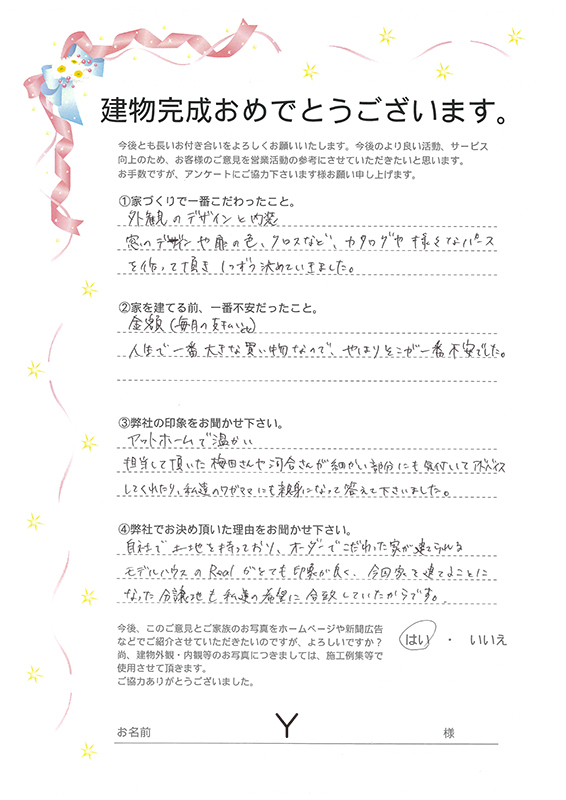 建物完成おめでとうございます。
今後とも長いお付き合いをよろしくお願いいたします。今後のより良い活動、サービス
向上のため、お客様のご意見を営業活動の参考にさせていただきたいと思います。
お手数ですが、アンケートにご協力下さいます様お願い申し上げます。
①家づくりで一番こだわったこと。
外観のデザインと内装
窓のデザインや扉の色、クロスなど、カタログや様々なパース
を作って頂き1つずつ決めていきました。
②家を建てる前、一番不安だったこと。
金額(毎月の支払い)
人生で一番大きな買い物なので、やはりそこが一番不安でした。
③弊社の印象をお聞かせ下さい。
アットホームで温かい
担当して頂いた梅田さんや河合さんが細かい部分にも気付いてアドバイス
してくれたり、私達のワガママにも親身になって答えて下さいました。
④弊社でお決め頂いた理由をお聞かせ下さい。
自社で土地を持っており、オーダーでこだわった家が建てられる
モデルハウスのRealがとても印象が良く、今回家を建てることに
なった分譲地も私達の希望に合致していたからです。
今後、このご意見とご家族のお写真をホームページや新聞広告
などでご紹介させていただきたいのですが、よろしいですか？
はい ・ いいえ
尚、建物外観・内観等のお写真につきましては、施工例集等で
使用させて頂きます。
ご協力ありがとうございました。
お名前 Y 様